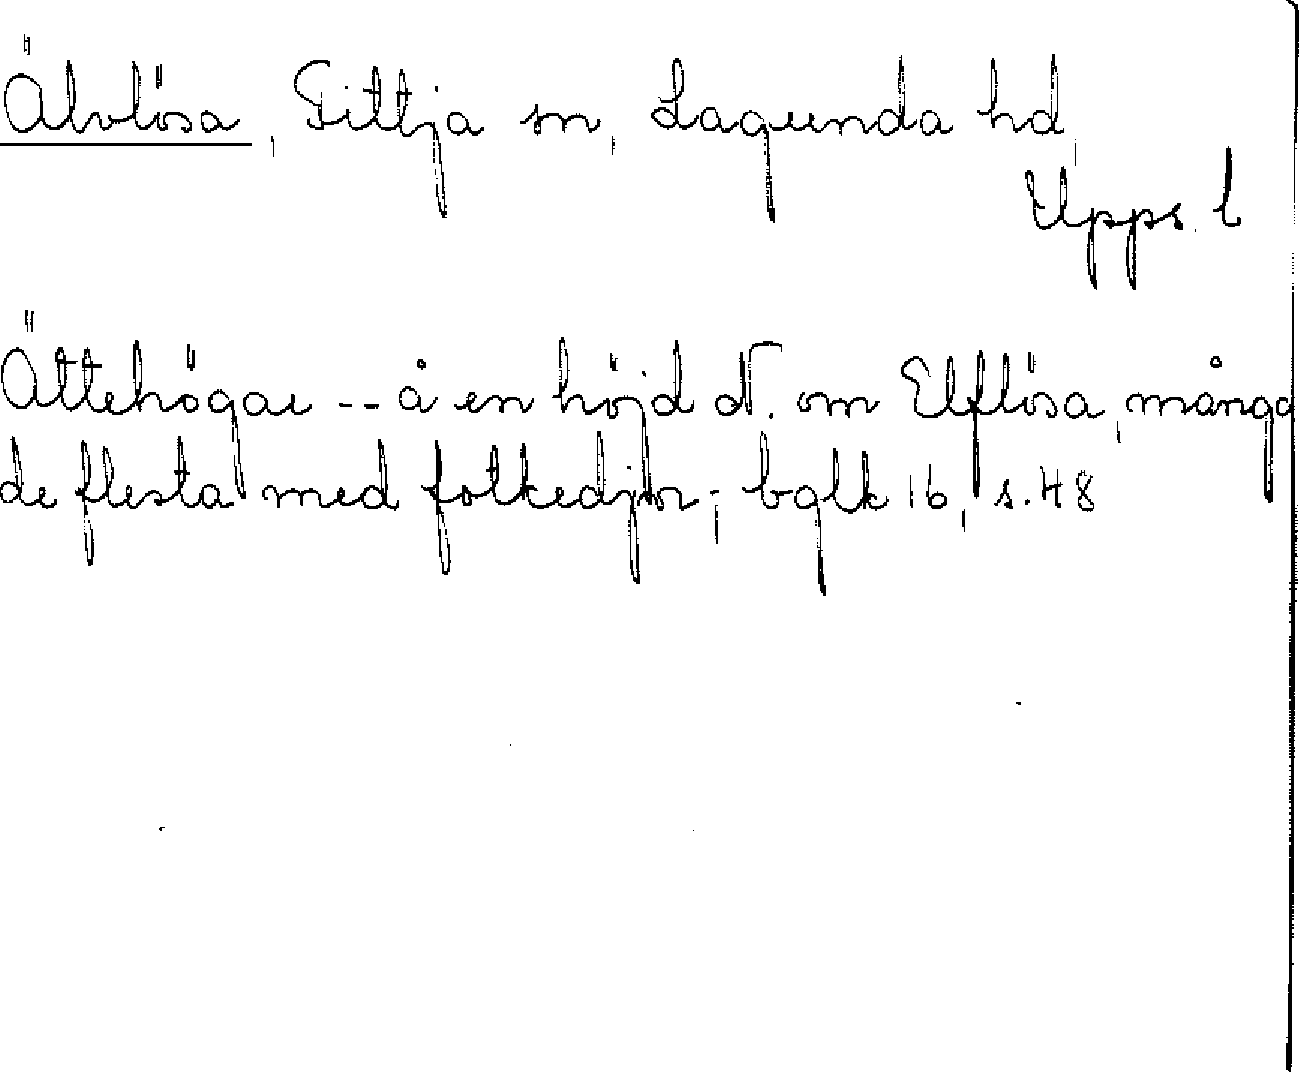 Älvlösa, Fittja sn, Lagunda hd,
Upps. l
Ättehögar -- å en höjd N. om Elflösa, många
de flesta med fotkedjor; bglk 16, s. 48